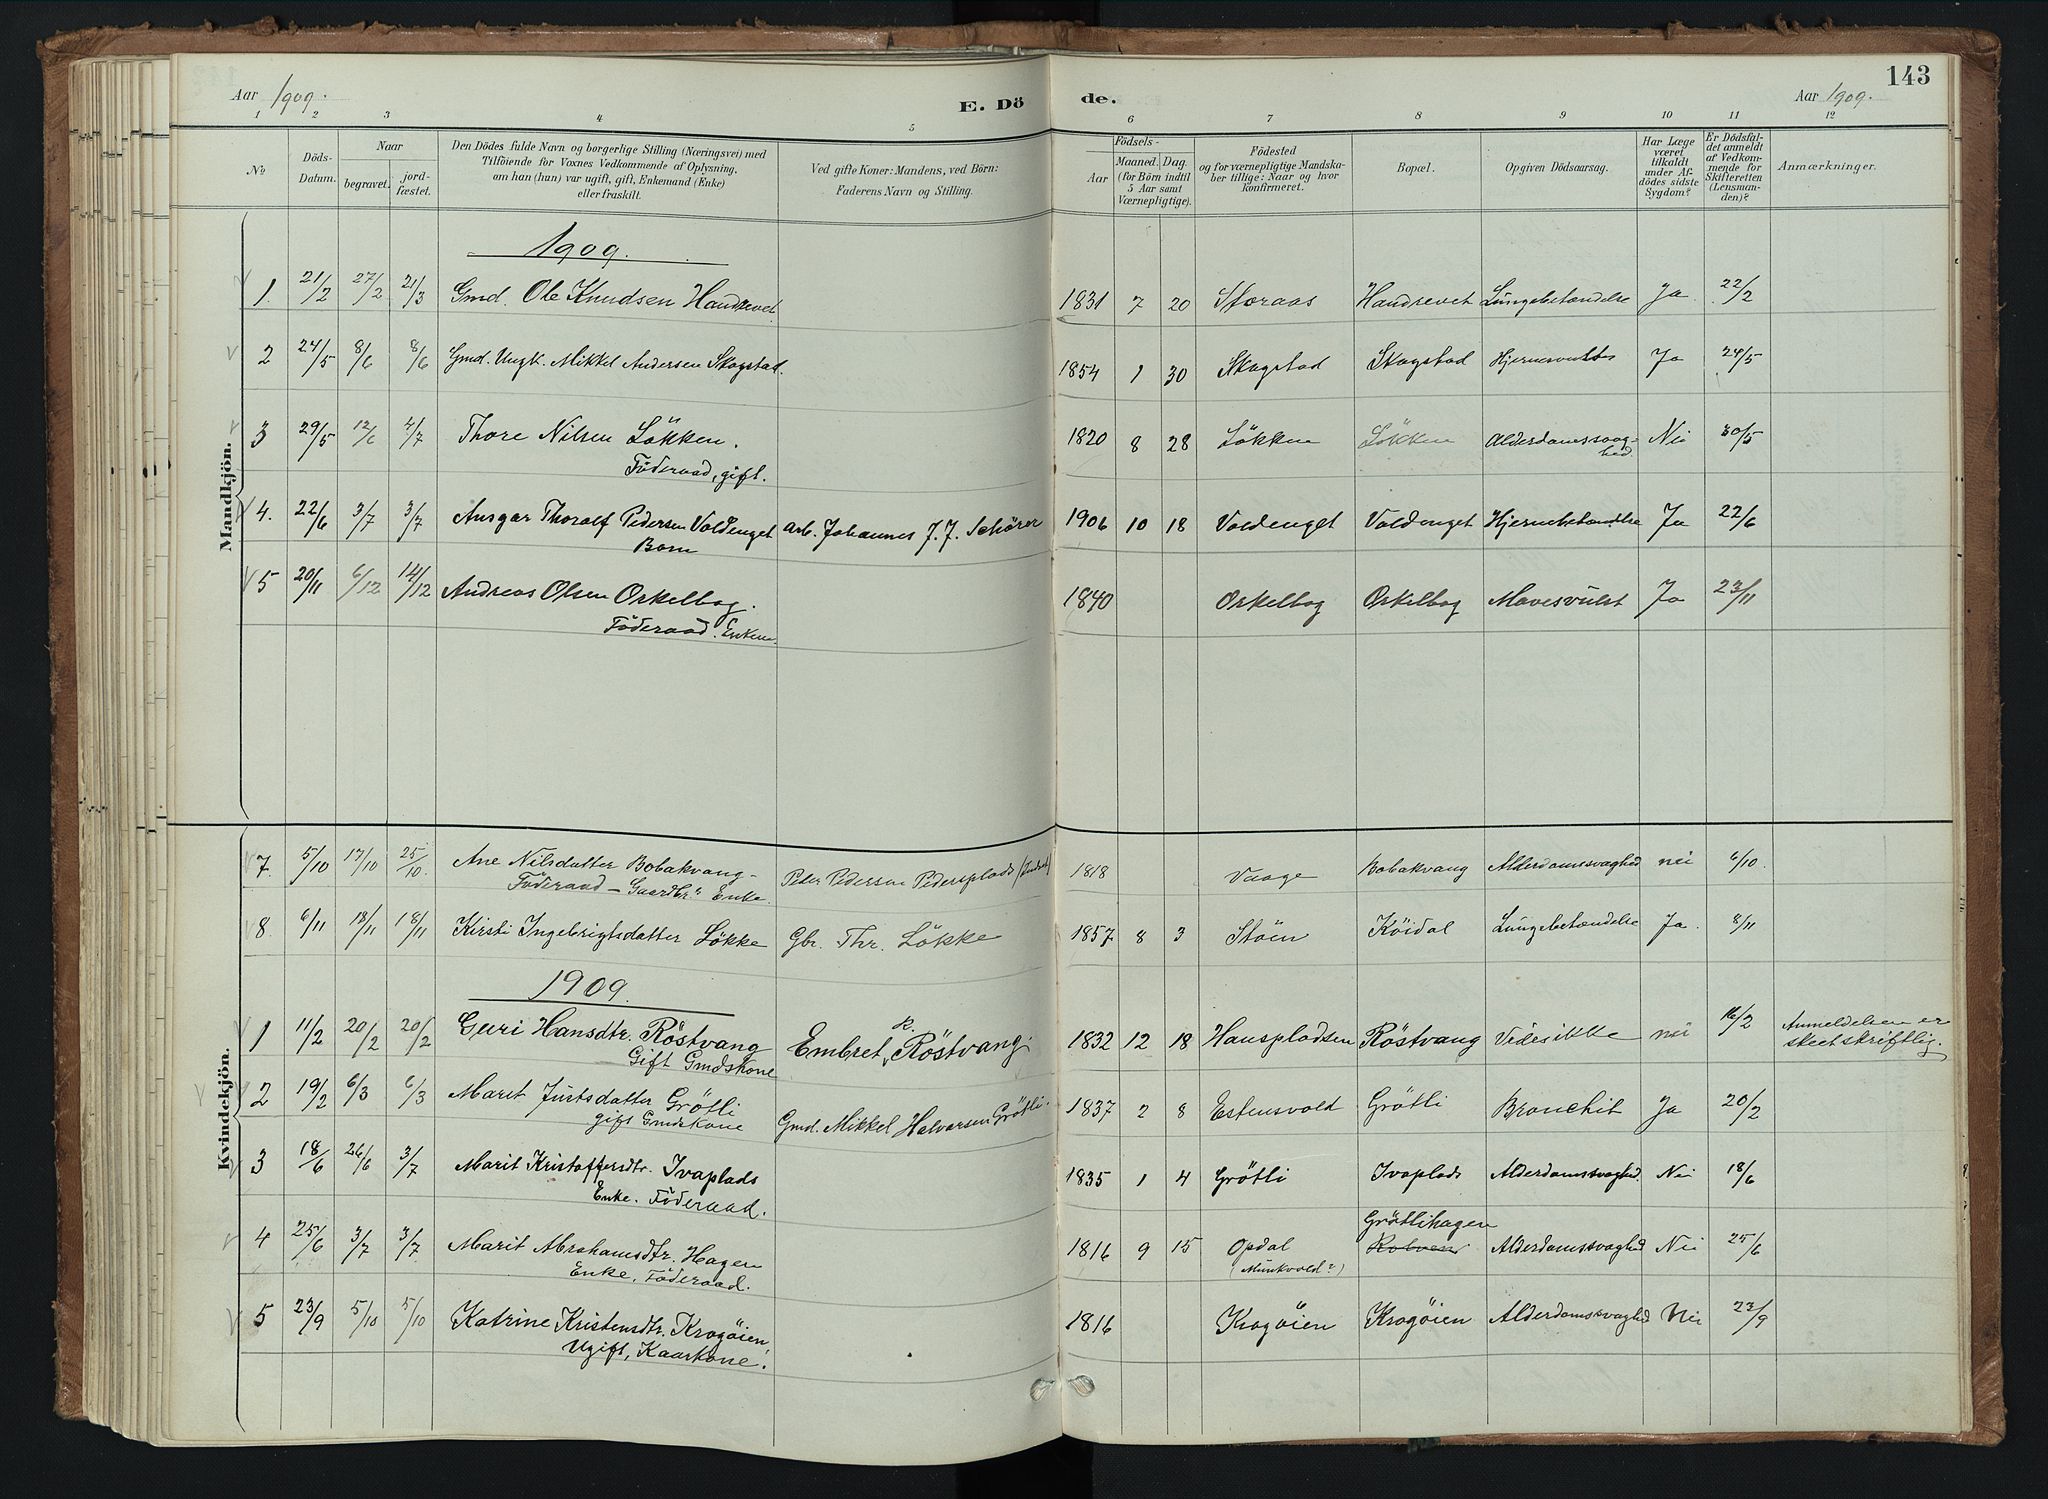 143
Aar 1909.
E. Döde.
Aar 1909.
1 2 3 4 5 6 7 8 9 10 11 12
No
Döds-Datum.
Naar
begravet.
jord-fæstet.
Den Dödes fulde Navn og borgerlige Stilling (Næringsvei) med
Tilföiende for Voxnes Vedkommende af Oplysning.
om han (hun) var ugift, gift, Enkemand (Enke)
eller fraskilt.
Ved gifte Koner: Mandens, ved Börn:
Faderens Navn og Stilling.
Födsels-
Aar
Maaned. Dag.
(for Börn indtil
5 Aar samt
Værnepligtige).
Födested
og for værnepligtige Mandska-
ber tillige: Naar og hvor
konfirmeret.
Bopæl.
Opgiven Dödsaarsag.
Har Læge
været
tilkaldt
under Af-
dödes sidste
Sygdom?
Er Dödsfal-
det anmeldt
af Vedkom-
mende for
Skifteretten
(Lensman-
den)?
Anmærkninger.
Mandkjön.
1909.
1. 21/2 27/2 21/3 Gmd. Ole Knudsen Handrevet. 1831 7 20 Storaas Handrevet Lungebetændelse Ja 22/2
2 24/5 8/6 8/6 Gmd. Ungk. Mikkel Andersen Skogstad. 1854 1 30 Skogstad Skogstad Hjernesvulst Ja 24/5
3 29/5 12/6 4/7 Thore Nilsen Lökken. 1820 8 28 Lökken Lökken Alderdomssvag-
hed. Nei 30/5
Föderaad, gift.
4. 22/6 3/7 3/7 Ansgar Thoralf Pedersen Voldenget Arb. Johannes J. J. Schörer 1906 10 18 Voldenget Voldenget Hjernebetændelse Ja 22/6
Barn
5 20/11 6/12 14/12 Andreas Olsen Orkelbog. 1840 Orkelbog Orkelbog Mavesvulst Ja 23/11
Föderaad. Enkem.
Kvindekjön.
7. 5/10 17/10 25/10 Ane Nilsdatter Bobakvang- Peder Pedersen Pedersplads (Indset) 1818 Vaage Bobakvang Alderdomssvaghed nei 6/10.
Föderaad - Gaardbr. Enke.
8. 6/11 18/11 18/11 Kirsti Ingebrigtsdatter Lökke Gbr. Thr. Lökke 1857 8 3 Stöen Köidal Lungebetændelse Ja. 8/11
1909.
1 11/2 20/2 20/2 Guri Hansdtr. Röstvang Embret R. Röstvang. 1832 12 18 Hanspladsen Röstvang Videsikke nei 16/2 Anmeldelsen er
skeet skriftlig.
Gift Gmdskone
2 19/2 6/3 6/3 Marit Jurtsdatter Grötli Gmd. Mikkel Halvorsen Grötli. 1837 2 8 Estensvold Grötli Bronchit Ja 20/2
gift Gmdskone
3 18/6 26/6 3/7 Marit Kristoffersdtr. Ivaplads 1835 1 4 Grötli Ivaplads Alderdomssvaghed. Nei 18/6
Enke. Föderaad.
4 25/6 3/7 3/7 Marit Abrahamsdtr. Hagen 1816 9 15 Opdal
(Munkvold?) Grötlihagen Alderdomssvaghed Nei 25/6
Enke, Föderaad.
5 23/9 5/10 5/10 Katrine Kristensdtr. Krogöien, 1816 Krogöien Krogöien Alderdomssvaghed Nei 23/9
Ugift, Kaarkone.